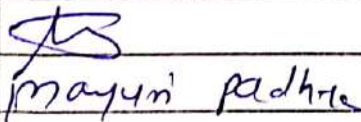 mayuri padhra